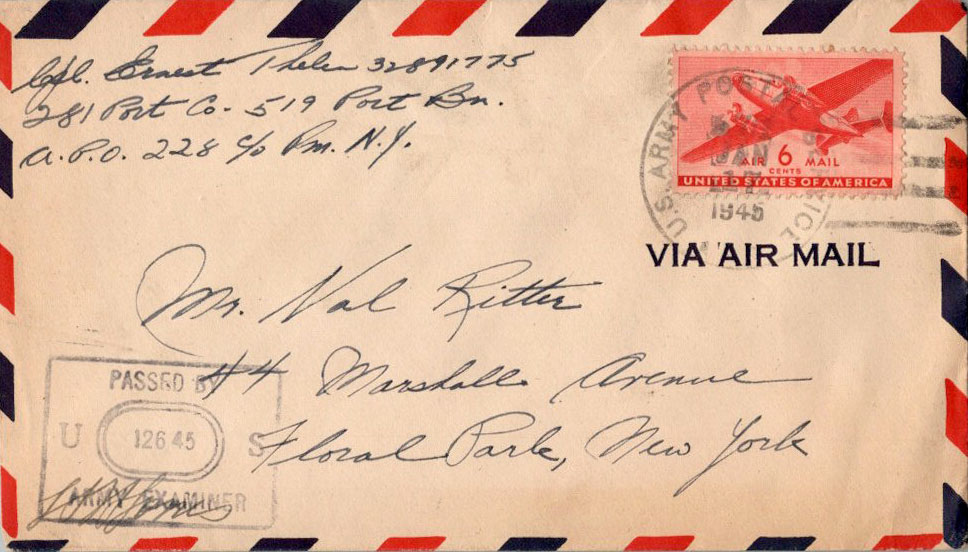 Cpl. Ernest Thelen 32891775
281 Port Co - 519 Port Bn.
A.P.O. 228 c/o Pm. N.Y.
U.S. ARMY POSTAL
JAN
1945
AIR 6 MAIL
CENTS
UNITED STATES OF AMERICA
VIA AIR MAIL
Mr. Val Ritter
44 Marshall Avenue
Floral Park, New York
PASSED BY
U 12645 S
ARMY EXAMINER